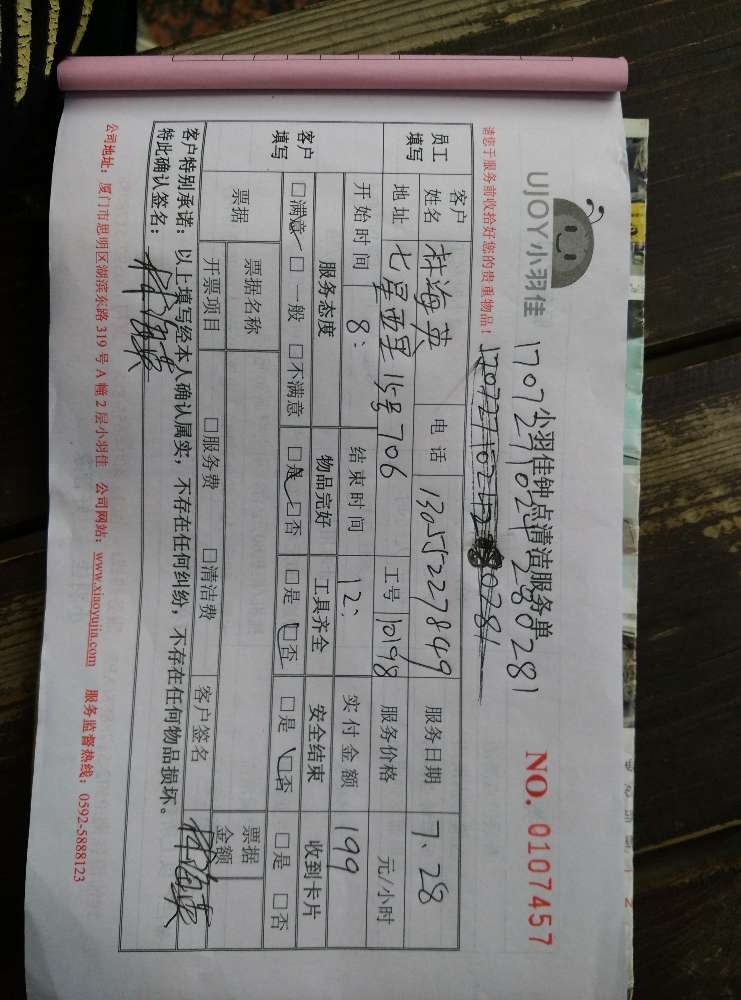 UJOY小羽佳
小羽佳钟点清洁服务单
NO. 0107457
请您于服务前收拾好您的贵重物品！
员工填写
客户姓名 林海英 电话 13055227849 服务日期 7.28
地址 七星西里15号706 工号 10198 服务价格 元/小时
开始时间 8: 结束时间 12: 实付金额 199
客户填写
服务态度 物品完好 工具齐全 安全结束 收到卡片
□满意 □一般 □不满意 □是 □否 □是 □否 □是 □否 □是 □否
票据 票据名称 票据金额
开票项目 □服务费 □清洁费 客户签名 林海英
客户特别承诺：以上填写经本人确认属实，不存在任何纠纷，不存在任何物品损坏。
特此确认签名： 林海英
公司地址：厦门市思明区湖滨东路319号A幢2层小羽佳 公司网站：www.xiaoyujia.com 服务监督热线：0592-5888123